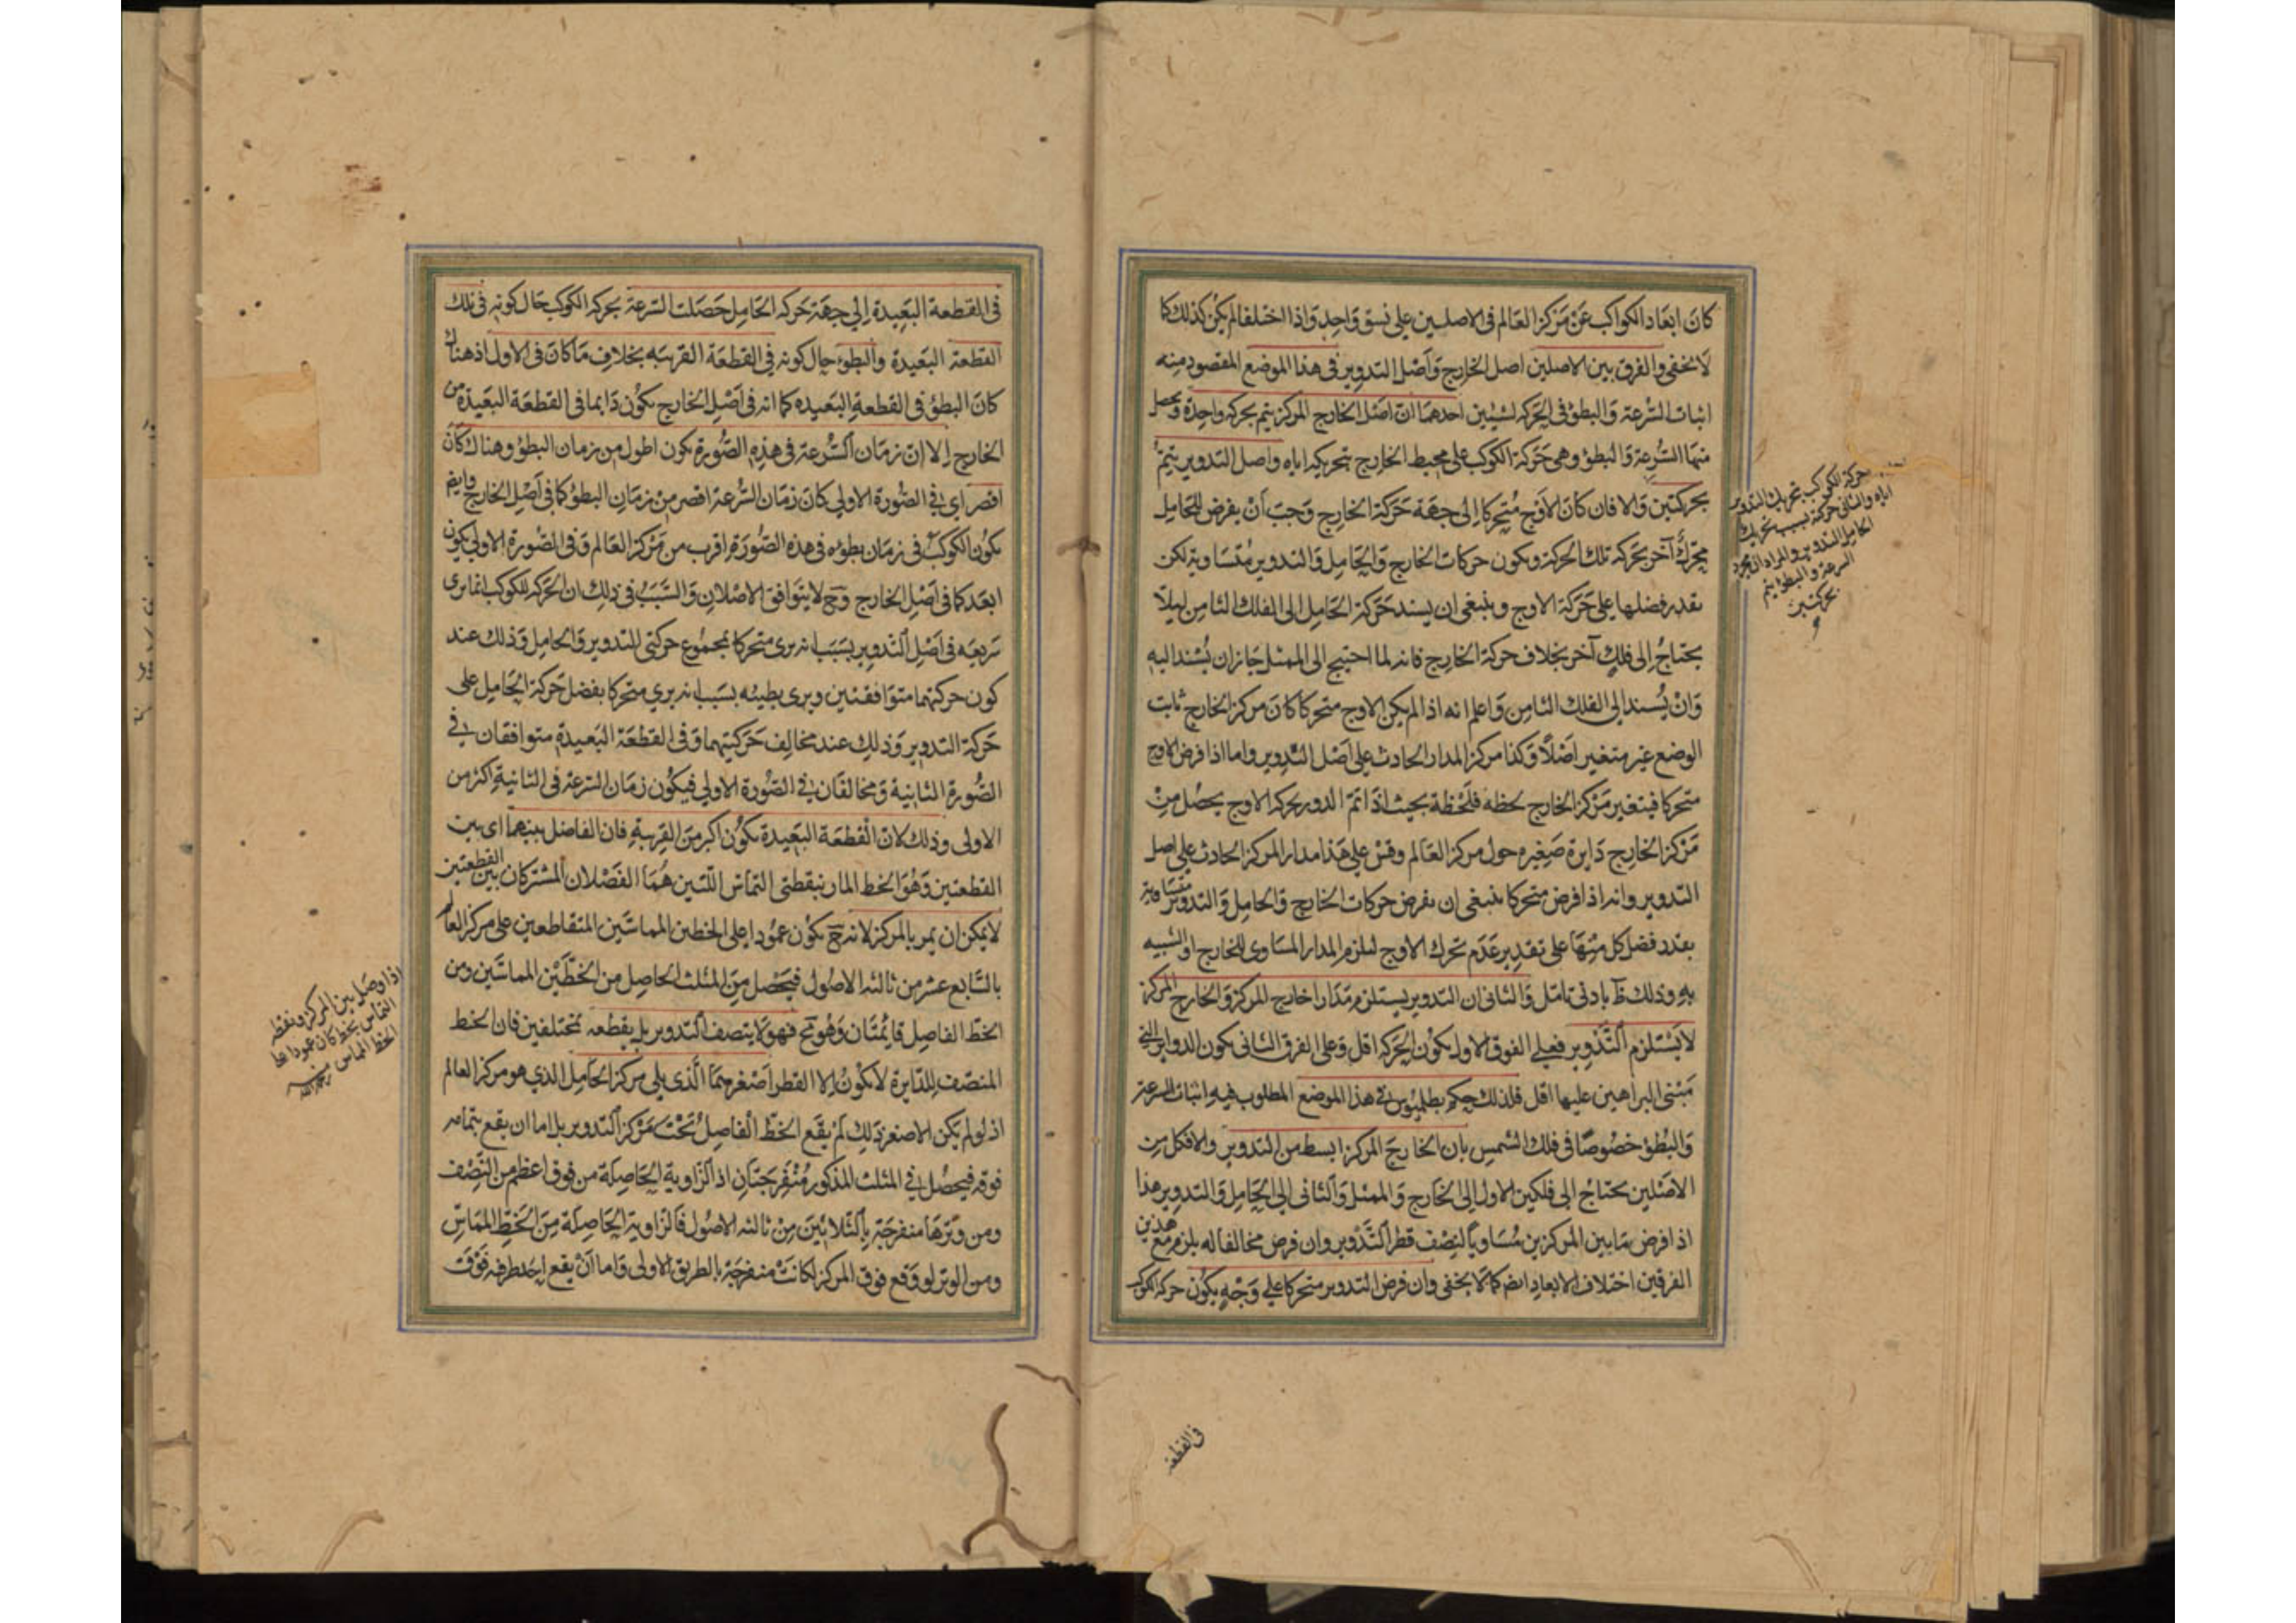 كان ابعاد الكواكب عن مركز العالم فى الاصلين على نسق واحد واذا اختلفا لم يكن كذلك كما
لا يخفى والفرق بين الاصلين اصل الخارج واصل التدوير فى هذا الموضع المقصود منه
اثبات السرعة والبطؤ فى الحركه لشيئين احدهما ان اصل الخارج المركز يتم بحركه واحدة ويحصل
منها السرعة والبطؤ وهى حركة الكوكب على محيط الخارج بتحريكه اياه واصل التدوير يتم
بحركتين والا فان كان الاوج متحركا الى جهة حركة الخارج وجب ان يفرض للحامل
محرك آخر بحركه تلك الحركة ويكون حركات الخارج والحامل والتدوير متساوية لكن
بقدر فضلها على حركة الاوج وينبغى ان يسند حركة الحامل الى الفلك الثامن ليلا
يحتاج الى فلك آخر بخلاف حركة الخارج فانه لما احتيج الى الممثل جاز ان يسند اليه
وان يسند الى الفلك الثامن واعلم انه اذا لم يكن الاوج متحركا كان مركز الخارج ثابت
الوضع غير متغير اصلا وكذا مركز المدار الحادث على اصل التدوير واما اذا فرض الاوج
متحركا فيتغير مركز الخارج لحظه فلحظة بحيث اذا تم الدور بحركه الاوج يحصل من
مركز الخارج دايرة صغيره حول مركز العالم وقس على هذا مدار المركز الحادث على اصل
التدوير وانه اذا فرض متحركا ينبغى ان يفرض حركات الخارج والحامل والتدوير متساوية
بقدر فضل كل منها على تقدير عدم تحرك الاوج ليلزم المدار المساوى للخارج او الشبيه
به وذلك ظ بادنى تامل والثانى ان التدوير يستلزم مدارا خارج المركز والخارج المركز
لا يستلزم التدوير فعلى الفرق الاول يكون الحركه اقل وعلى الفرق الثانى يكون الدواير التى
مبنى البراهين عليها اقل فلذلك حكم بطلميوس فى هذا الموضع المطلوب فيه اثبات السرعة
والبطؤ خصوصا فى فلك الشمس بان الخارج المركز ابسط من التدوير والا فكل من
الاصلين يحتاج الى فلكين الاول الى الخارج والممثل والثانى الى الحامل والتدوير هذا
اذا فرض ما بين المركزين مساويا لنصف قطر التدوير وان فرض مخالفا له يلزم مع هذين
الفرقين اختلاف الابعاد ايضا كما لا يخفى وان فرض التدوير متحركا على وجه يكون حركة الكوكب
بحركة الكوكب بتحريك التدوير
اياه والثانى حركته بسبب تحريك
الحامل التدوير والمراد ان مجرد
السرعة والبطؤ يتم
بحركتين
فى القطعة
فى القطعة البعيدة الى جهة حركه الحامل حصلت السرعة بحركه الكوكب حال كونه فى تلك
القطعة البعيدة والبطؤ حال كونه فى القطعة القريبه بخلاف ما كان فى الاول اذ هناك
كان البطؤ فى القطعة البعيده كما انه فى اصل الخارج يكون دايما فى القطعة البعيدة من
الخارج الا ان زمان السرعة فى هذه الصورة يكون اطول من زمان البطؤ وهناك كان
اقصر اى فى الصورة الاولى كان زمان السرعة اقصر من زمان البطؤ كما فى اصل الخارج وايضا
يكون الكوكب فى زمان بطؤه فى هذه الصورة اقرب من مركز العالم وفى الصورة الاولى يكون
ابعد كما فى اصل الخارج وح لا يتوافق الاصلان والسبب فى ذلك ان الحركه للكوكب انما يرى
سريعه فى اصل التدوير بسبب انه يرى متحركا بمجموع حركتى التدوير والحامل وذلك عند
كون حركتهما متوافقتين ويرى بطيئه بسبب انه يرى متحركا بفضل حركة الحامل على
حركة التدوير وذلك عند مخالف حركتيهما وفى القطعة البعيدة متوافقان فى
الصورة الثانية ومخالفان فى الصورة الاولى فيكون زمان السرعة فى الثانية اكثر من
الاولى وذلك لان القطعة البعيدة يكون اكبر من القريبة فان الفاصل بينهما اى بين
القطعتين وهو الخط المار بنقطتى التماس اللتين هما الفصلان المشتركان بين القطعتين
لا يمكن ان يمر بالمركز لانه ح يكون عمودا على الخطين المماسين المتقاطعين على مركز العالم
بالسابع عشر من ثالثه الاصول فيحصل من المثلث الحاصل من الخطين المماسين ومن
الخط الفاصل قايمتان وهو مح فهو لا ينصف التدوير بل يقطعه بمختلفين فان الخط
المنصف للدايرة لا يكون الا القطر اصغرهما الذى يلى مركز الحامل الذى هو مركز العالم
اذ لو لم يكن الاصغر ذلك لم يقع الخط الفاصل تحت مركز التدوير بل اما ان يقع بتمامه
فوقه فيحصل فى المثلث المذكور منفرجتان اذ الزاوية الحاصلة من قوس اعظم من النصف
ومن وترها منفرجة بالثلاثين من ثالثه الاصول فالزاوية الحاصلة من الخط المماس
ومن الوتر لو وقع فوق المركز لكانت منفرجة بالطريق الاولى واما ان يقع احد طرفه فوق
اذا وصل بين المركز ونقطه
التماس بخط كان عمودا على
الخط المماس